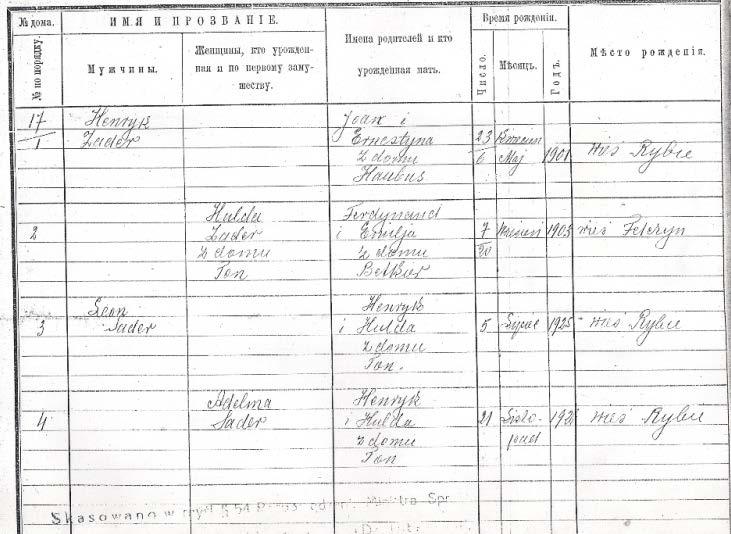 № дома.
ИМЯ И ПРОЗВАНІЕ.
Время рожденія.
№ по порядку.
Мужчины.
Женщины, кто урожден-
ная и по первому заму-
жеству.
Имена родителей и кто
урожденная мать.
Число.
Мѣсяцъ.
Годъ.
Мѣсто рожденія.
17 Henryk Joan i
1 Zader Ernestyna 23
z domu 6 Maj 1901 wieś Rybie
Haubus
Hulda Ferdynand
2 Zader i Emilja 7 1905 wieś Feteryn
z domu z domu 20
Ton Betker
Leon Henryk
3 Sader i Hulda 5 Lipiec 1925 wieś Rybie
z domu
Ton.
Adelma Henryk
4 Sader i Hulda 21 Listo- 192 wieś Rybie
z domu pad
Ton
Skasowano w myśl § 54 Spr.